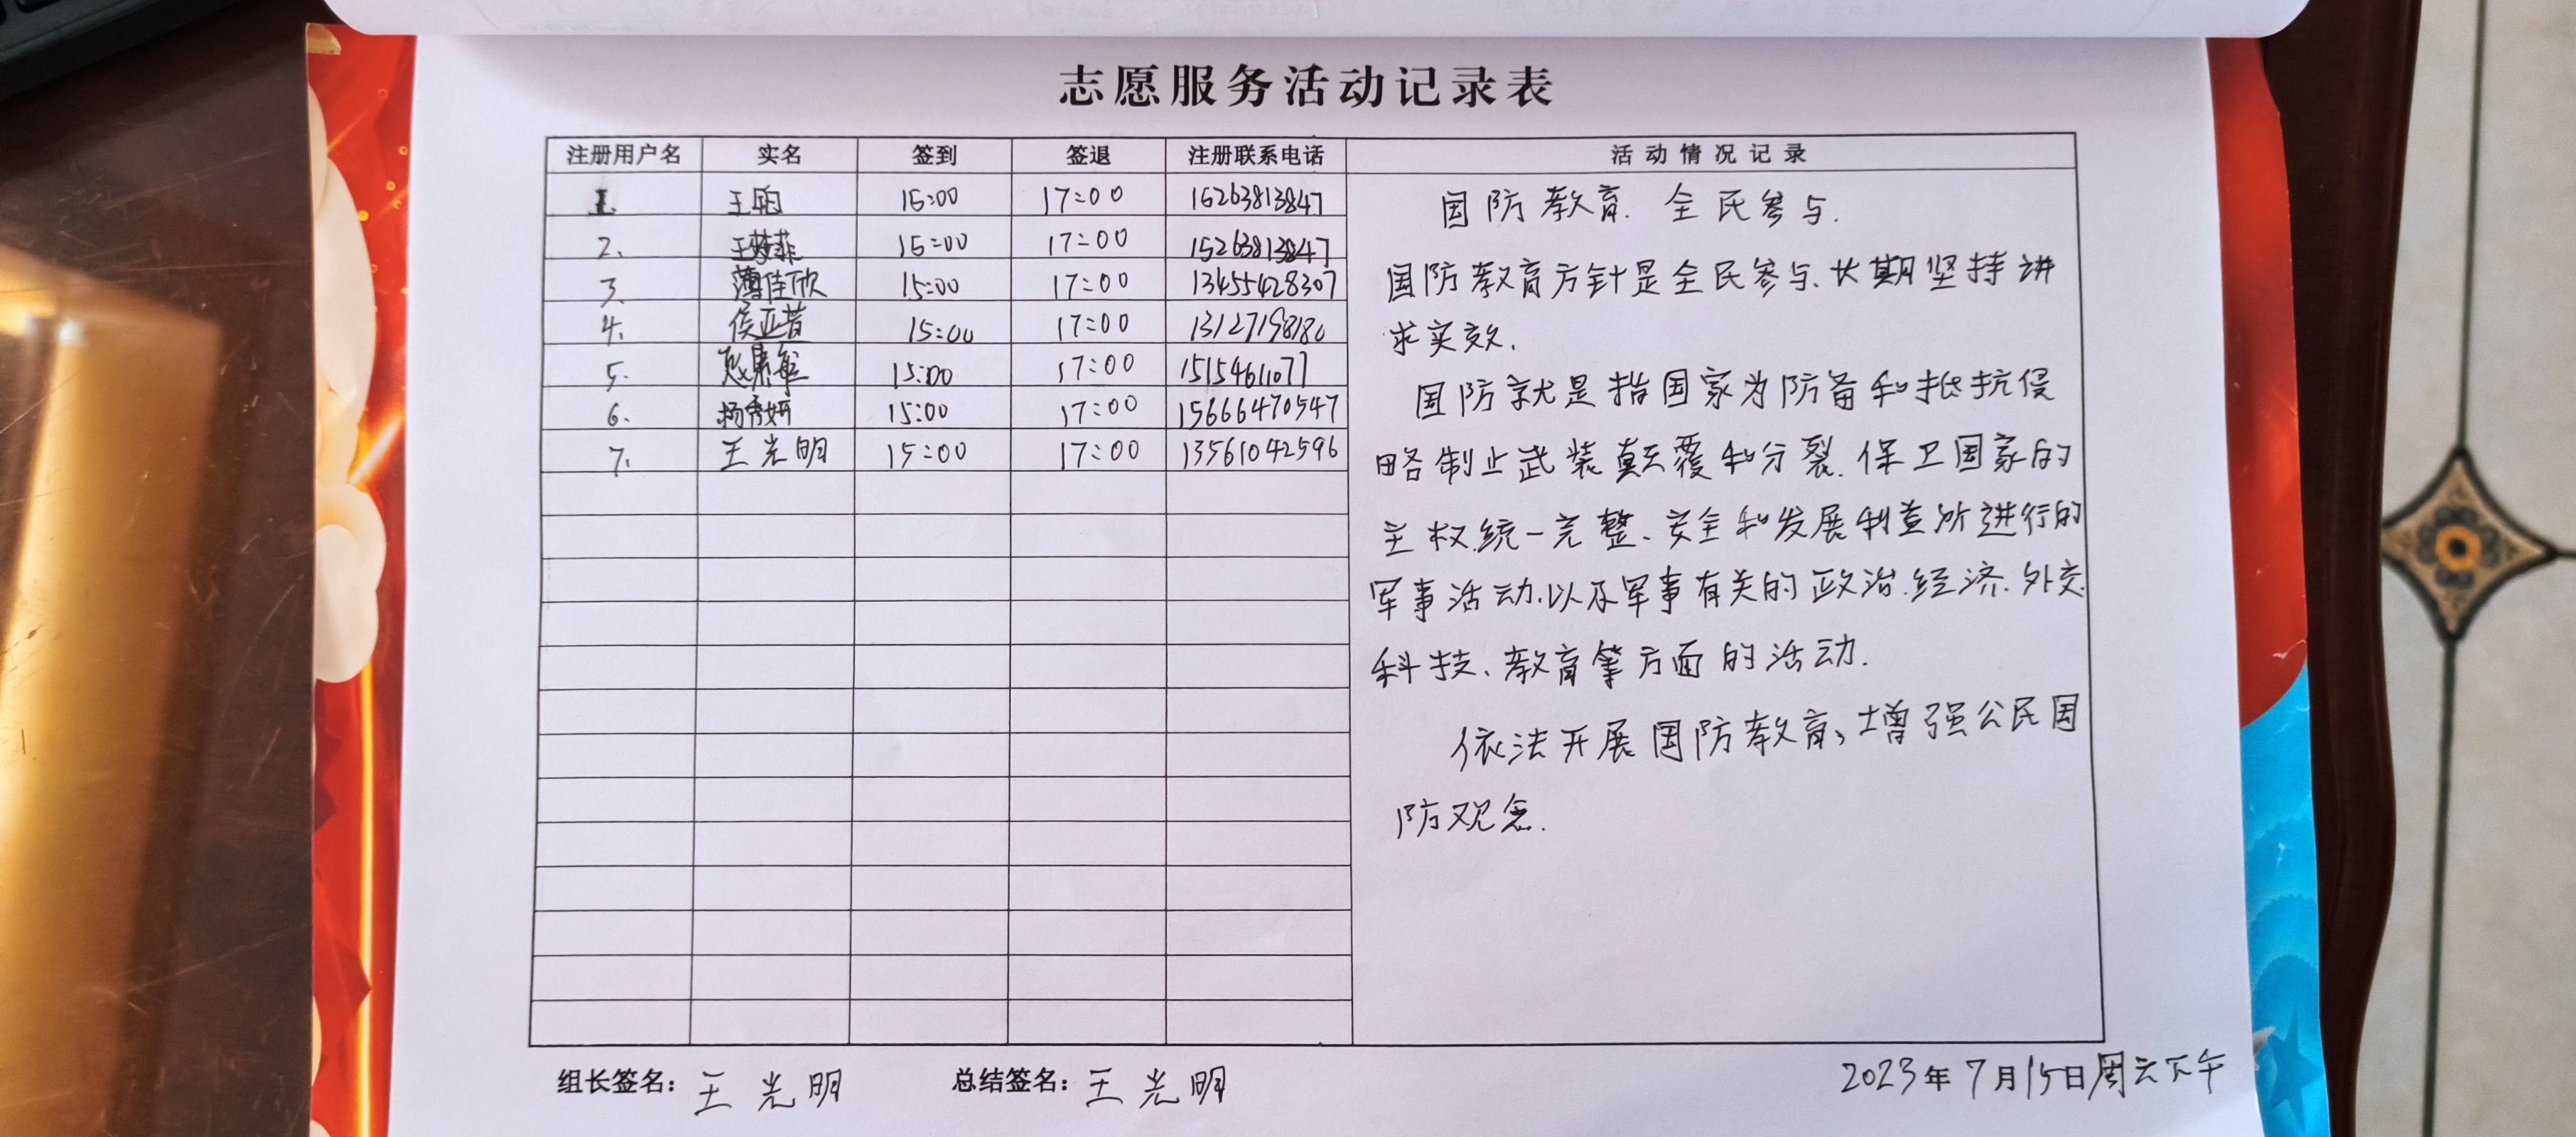 志愿服务活动记录表
注册用户名 实名 签到 签退 注册联系电话 活动情况记录
1. 王 15:00 17:00 15263813847
2. 王梦菲 15:00 17:00 15263813847
3. 薄佳欣 15:00 17:00 13455428307
4. 侯亚茹 15:00 17:00 13127198180
5. 15:00 17:00 15154611077
6. 杨秀妍 15:00 17:00 15666470547
7. 王光明 15:00 17:00 13561042596
国防教育. 全民参与.
国防教育方针是全民参与、长期坚持讲
求实效.
国防就是指国家为防备和抵抗侵
略制止武装颠覆和分裂. 保卫国家的
主权.统一完整、安全和发展利益所进行的
军事活动.以及军事有关的政治.经济.外交.
科技、教育等方面的活动.
依法开展国防教育,增强公民国
防观念.
组长签名: 王光明 总结签名: 王光明 2023年7月15日周六下午